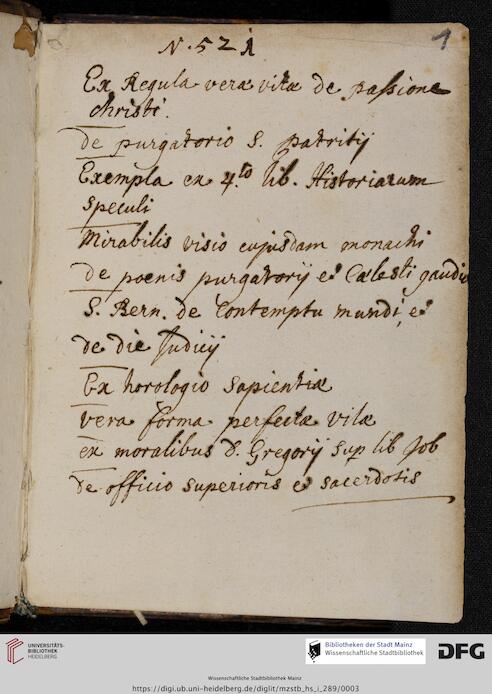 N. 521
1
Ex Regula vera vitæ de passione
christi.
De purgatorio S. patritij
Exempla ex 4.to lib. Historiarum
speculi
Mirabilis visio cujusdam monachi
de poenis purgatorij et Cœlesti gaudio
S. Bern. de Contemptu mundi, et
de die Judicij
Ex horologio sapientiæ
vera forma perfectæ vitæ
ex moralibus D. Gregorij sup lib Job
De officio superioris et sacerdotis
UNIVERSITÄTS-
BIBLIOTHEK
HEIDELBERG
Bibliotheken der Stadt Mainz
Wissenschaftliche Stadtbibliothek
DFG
Wissenschaftliche Stadtbibliothek Mainz
https://digi.ub.uni-heidelberg.de/diglit/mzstb_hs_i_289/0003